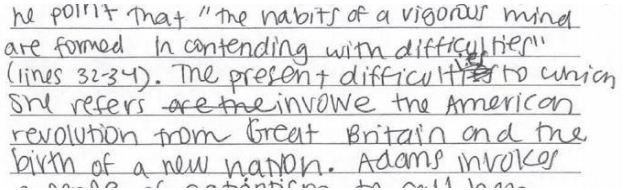 he point that "the habits of a vigorous mind
are formed in contending with difficulties"
(lines 32-34). The present difficulties to which
she refers are the invovve the American
revolution from Great Britain and the
birth of a new nation. Adams invokes
a sense of patriotism to call